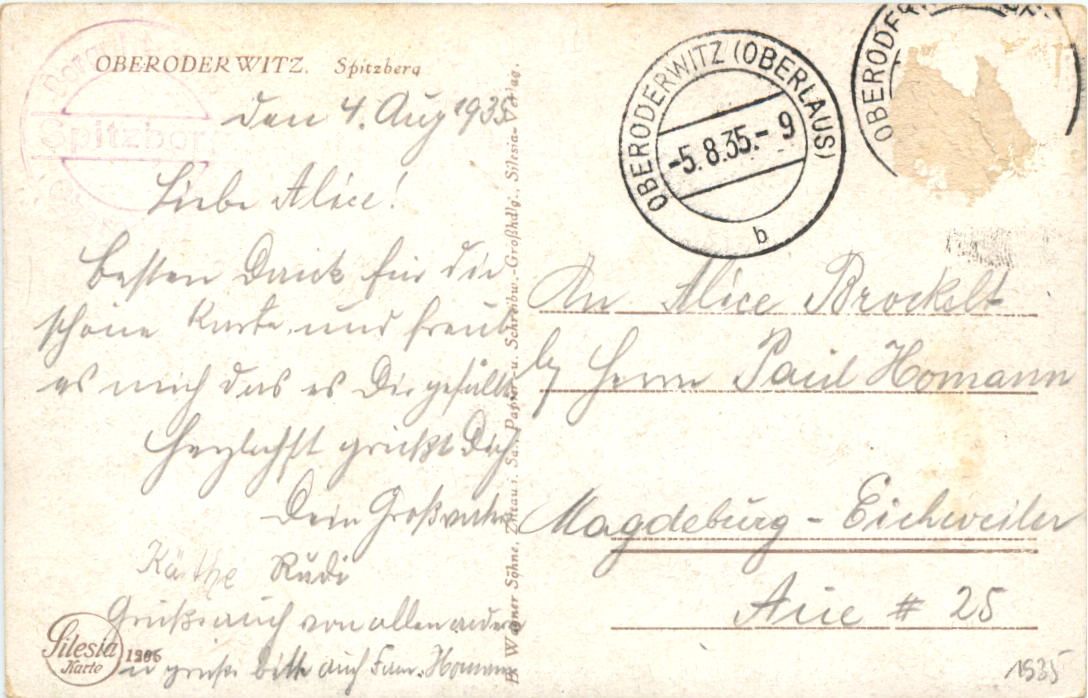 OBERODERWITZ. Spitzberg
Spitzber
den 4. Aug 1935
Liebe Alice!
besten Dank für die
schöne Karte, und freut
es mich das es Dir gefällt
herzlichst grüßt Dich
Dein Großvater
Käthe Rudi
Grüße auch von allen andern
u grüße bitte auch Fam. Homann
Silesia
Karte
1906
E. Wagner Söhne, Zittau i. Sa., Papier- u. Schreibw.-Großhdlg., Silesia-Verlag.
OBERODERWITZ (OBERLAUS)
-5.8.35.- 9
b
OBERODE
An Alice Brockelt
b/ Herrn Paul Homann
Magdeburg - Eichweiler
Aue # 25
1935